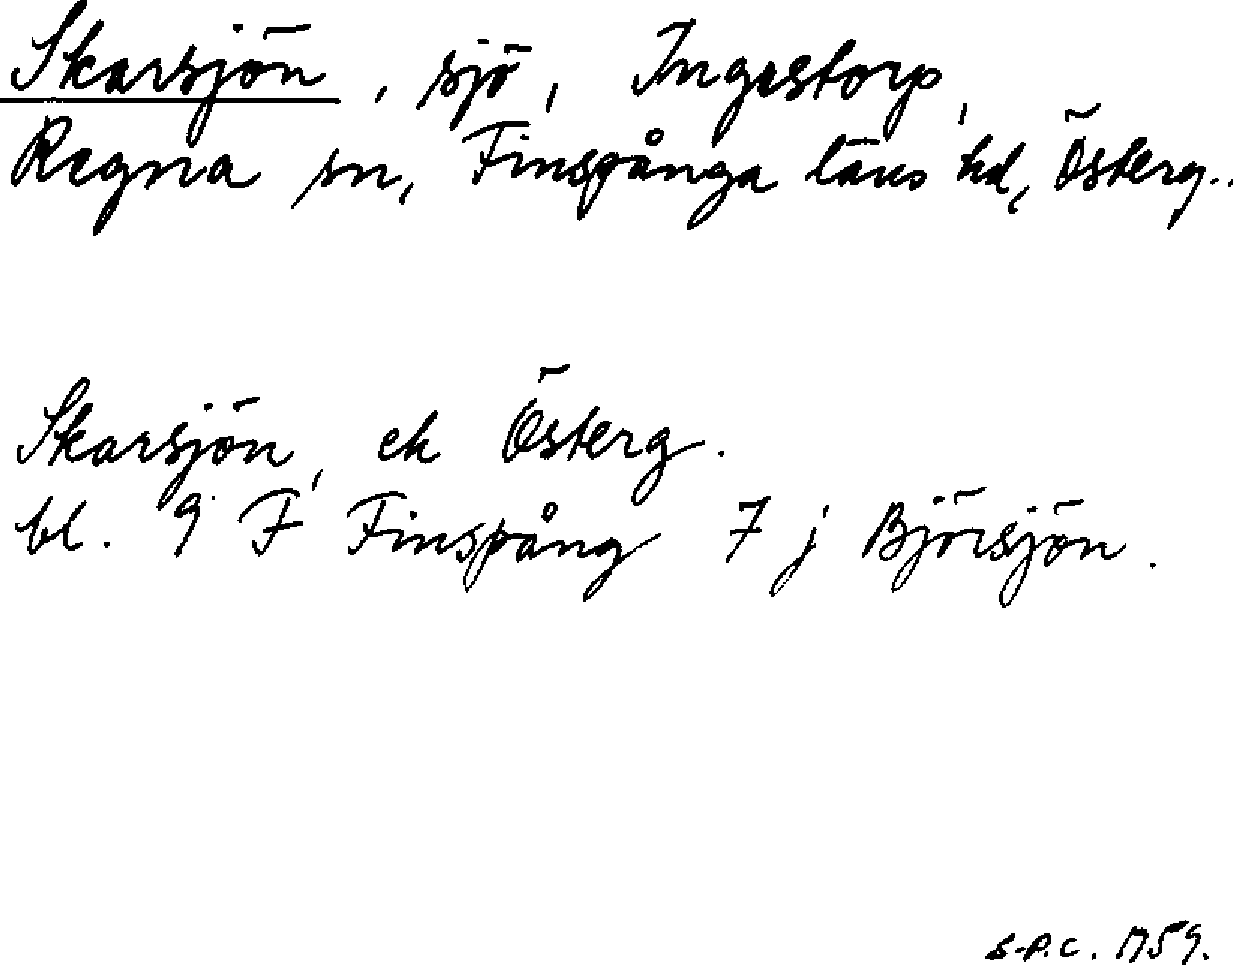 Skarsjön, sjö, Ingestorp,
Regna sn, Finspånga läns hd, Österg..
Skarsjön, ek Österg.
bl. 9 F Finspång 7 j Björsjön.
S.P.C. 1959.